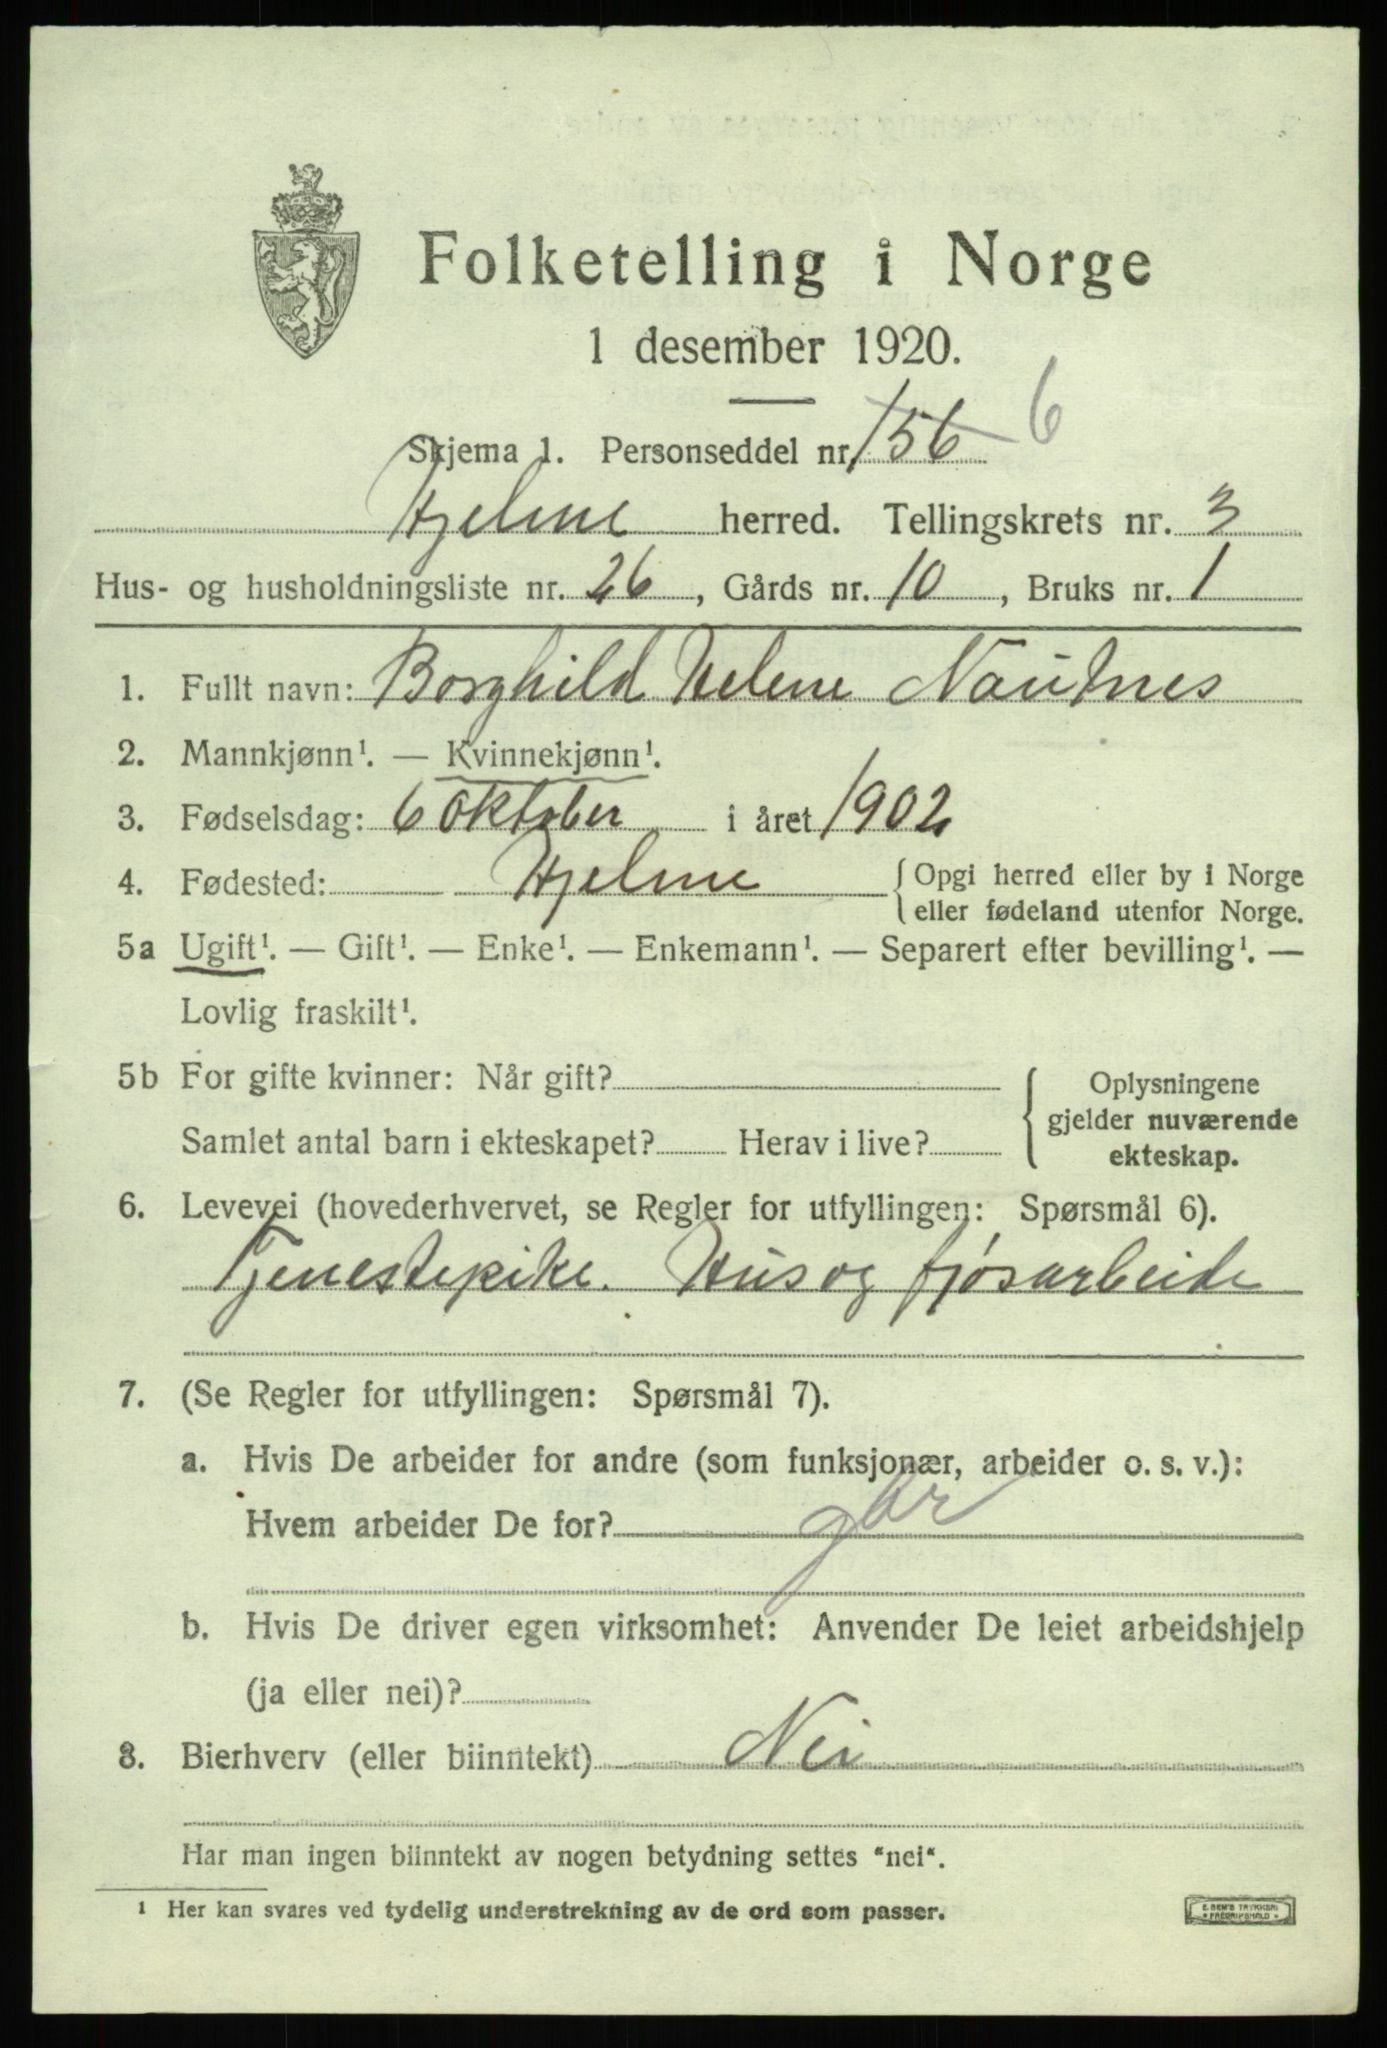 Folketelling i Norge
1 desember 1920.
Skjema 1. Personseddel nr. 156 6
Hjelme herred. Tellingskrets nr. 3
Hus- og husholdningsliste nr. 26, Gårds nr. 10, Bruks nr. 1
1. Fullt navn: Borghild Helene Nautnes
2. Mannkjønn¹. — Kvinnekjønn¹.
3. Fødselsdag: 6 oktober i året 1902
4. Fødested: Hjelme { Opgi herred eller by i Norge
eller fødeland utenfor Norge.
5a Ugift¹. — Gift¹. — Enke¹. — Enkemann¹. — Separert efter bevilling¹. —
Lovlig fraskilt¹.
5b For gifte kvinner: Når gift?
Samlet antal barn i ekteskapet? Herav i live?
{ Oplysningene
gjelder nuværende
ekteskap.
6. Levevei (hovederhvervet, se Regler for utfyllingen: Spørsmål 6).
Tjenestepike. Hus og fjøsarbeide
7. (Se Regler for utfyllingen: Spørsmål 7).
a. Hvis De arbeider for andre (som funksjonær, arbeider o. s. v.):
Hvem arbeider De for?
b. Hvis De driver egen virksomhet: Anvender De leiet arbeidshjelp
(ja eller nei)?
8. Bierhverv (eller biinntekt) Nei
Har man ingen biinntekt av nogen betydning settes "nei".
¹ Her kan svares ved tydelig understrekning av de ord som passer.
E. SEM'S TRYKKERI
FREDRIKSHALD